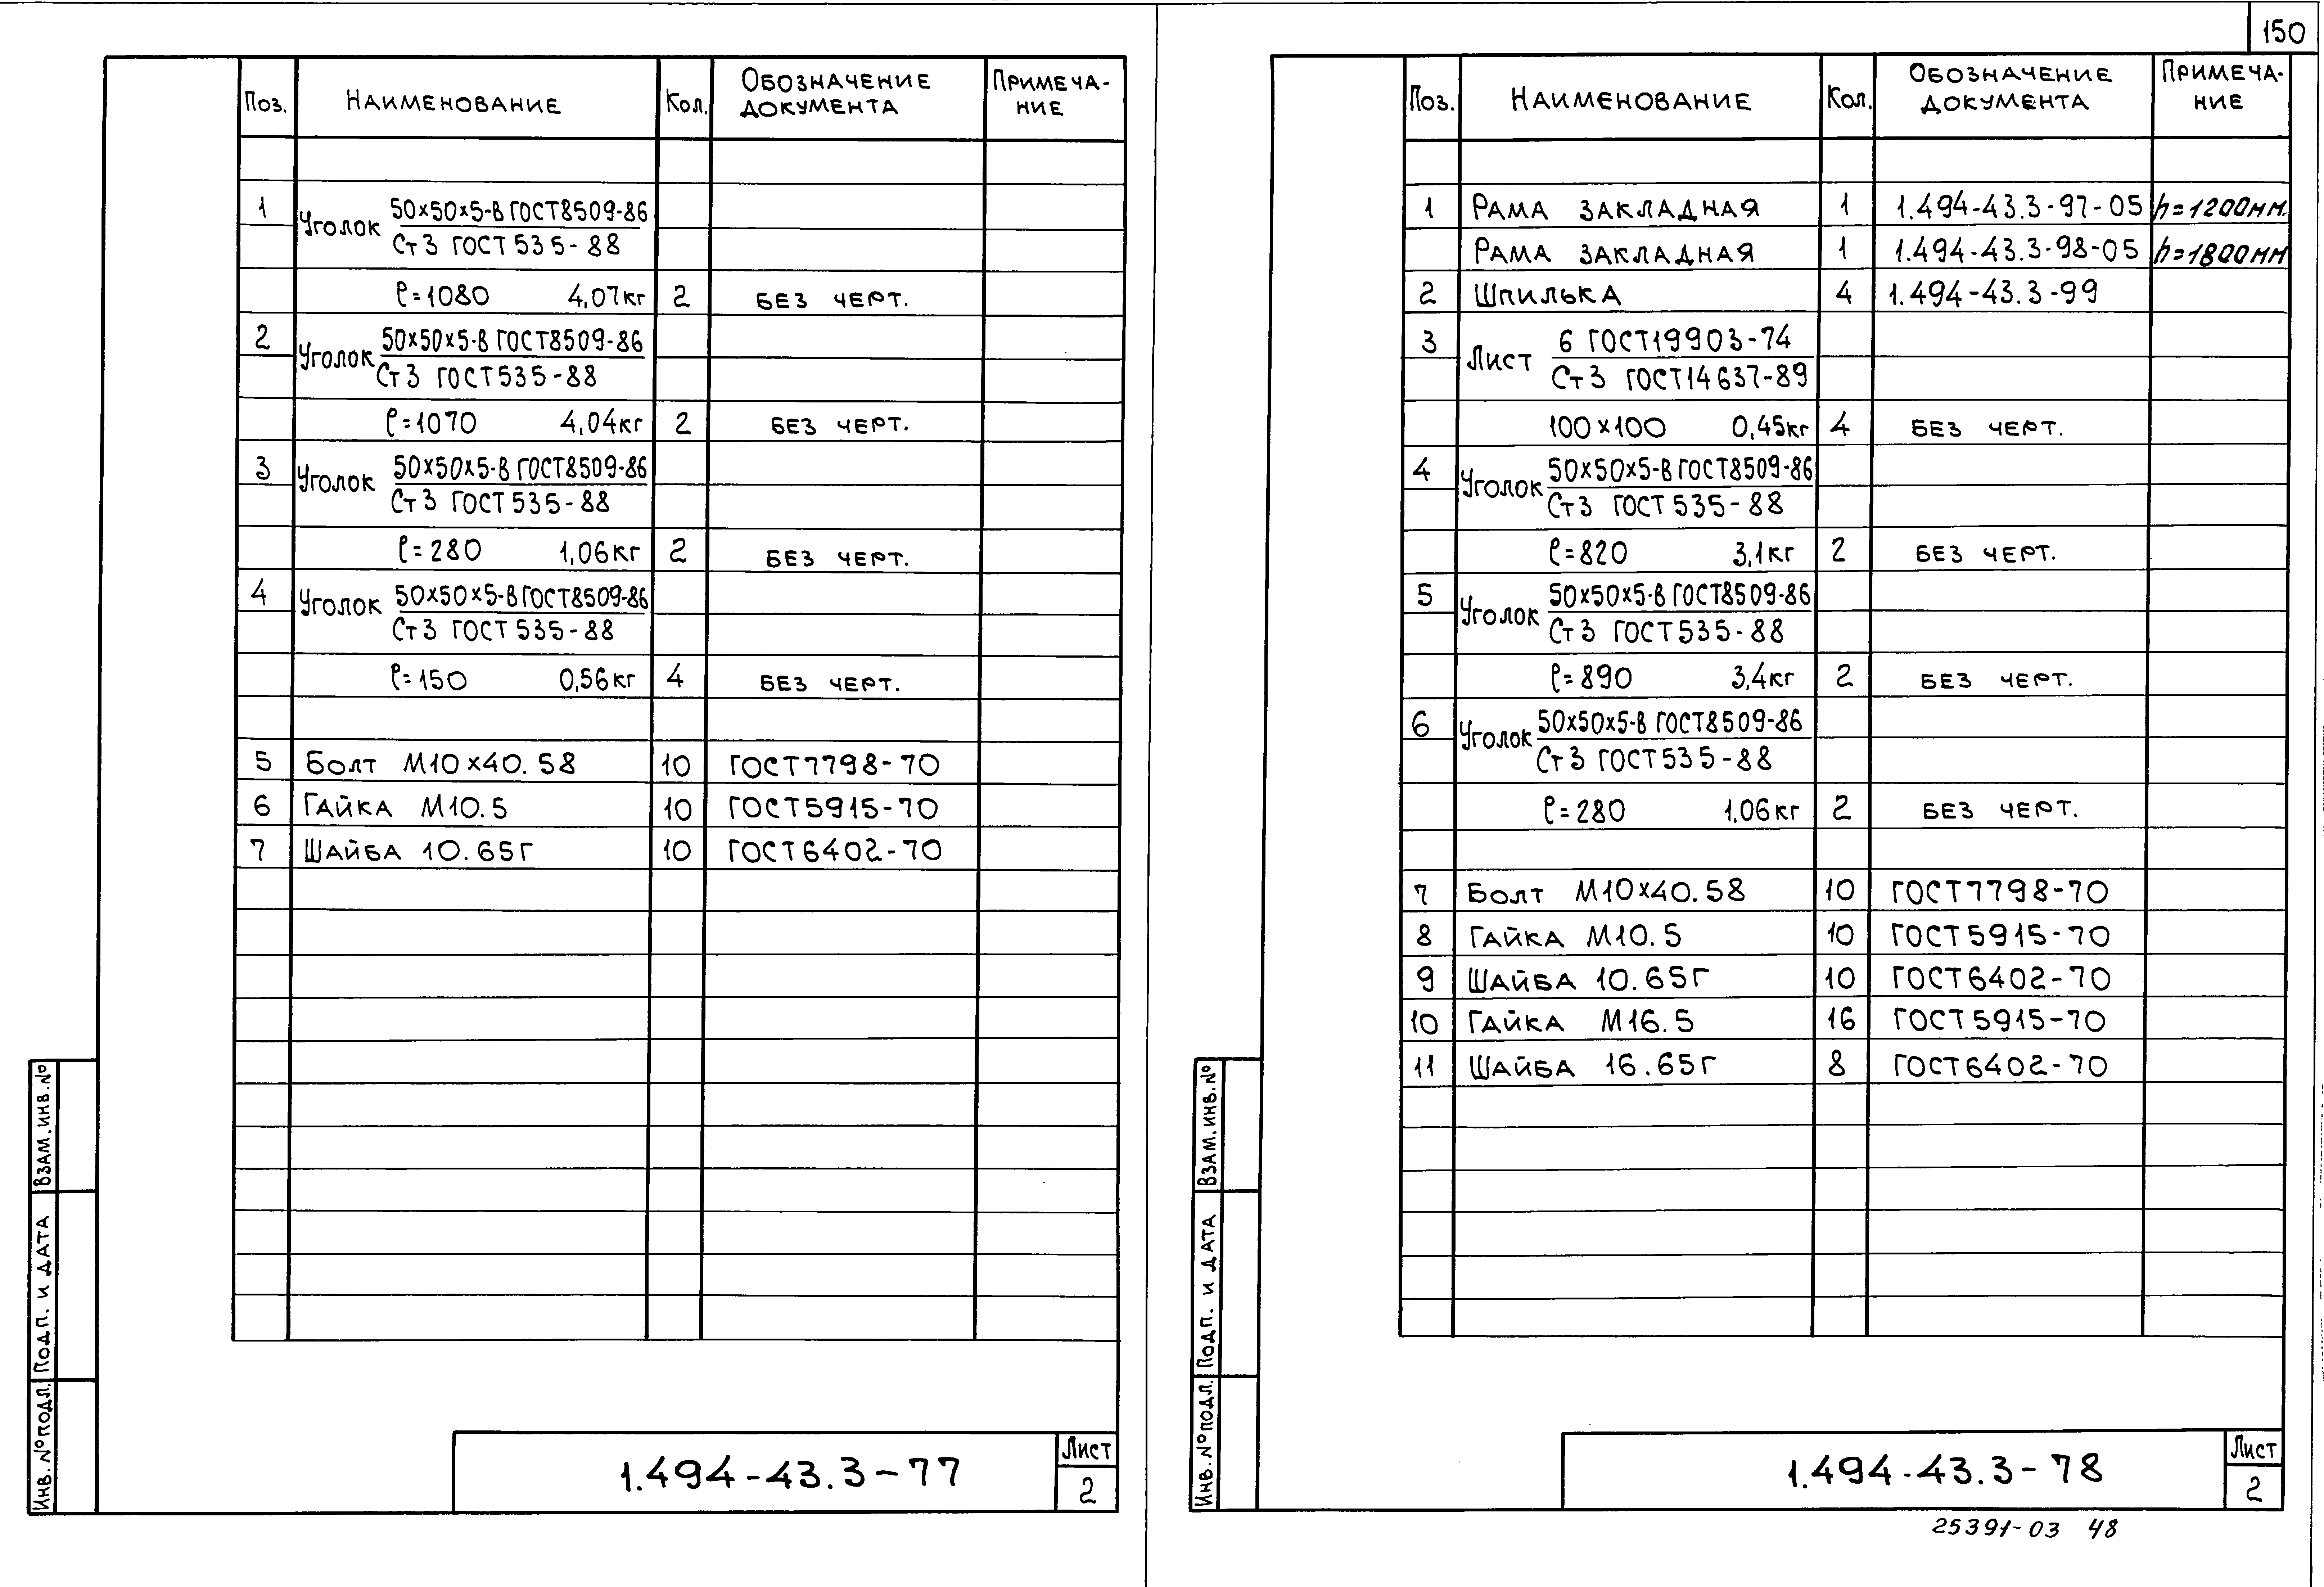 150
Поз. Наименование Кол. Обозначение документа Примеча-ние
1 Уголок 50х50х5-В ГОСТ8509-86
Ст3 ГОСТ535-88
ℓ=1080 4,07кг 2 без черт.
2 Уголок 50х50х5-В ГОСТ8509-86
Ст3 ГОСТ535-88
ℓ=1070 4,04кг 2 без черт.
3 Уголок 50х50х5-В ГОСТ8509-86
Ст3 ГОСТ535-88
ℓ=280 1,06кг 2 без черт.
4 Уголок 50х50х5-В ГОСТ8509-86
Ст3 ГОСТ535-88
ℓ=150 0,56кг 4 без черт.
5 Болт М10х40.58 10 ГОСТ7798-70
6 Гайка М10.5 10 ГОСТ5915-70
7 Шайба 10.65Г 10 ГОСТ6402-70
Взам.инв.№
Подп. и дата
Инв.№подл.
1.494-43.3-77
Лист
2
Поз. Наименование Кол. Обозначение документа Примеча-ние
1 Рама закладная 1 1.494-43.3-97-05 h=1200мм.
Рама закладная 1 1.494-43.3-98-05 h=1800мм
2 Шпилька 4 1.494-43.3-99
3 Лист 6 ГОСТ19903-74
Ст3 ГОСТ14637-89
100х100 0,45кг 4 без черт.
4 Уголок 50х50х5-В ГОСТ8509-86
Ст3 ГОСТ535-88
ℓ=820 3,1кг 2 без черт.
5 Уголок 50х50х5-В ГОСТ8509-86
Ст3 ГОСТ535-88
ℓ=890 3,4кг 2 без черт.
6 Уголок 50х50х5-В ГОСТ8509-86
Ст3 ГОСТ535-88
ℓ=280 1,06кг 2 без черт.
7 Болт М10х40.58 10 ГОСТ7798-70
8 Гайка М10.5 10 ГОСТ5915-70
9 Шайба 10.65Г 10 ГОСТ6402-70
10 Гайка М16.5 16 ГОСТ5915-70
11 Шайба 16.65Г 8 ГОСТ6402-70
Взам.инв.№
Подп. и дата
Инв.№подл.
1.494-43.3-78
Лист
2
25391-03 48